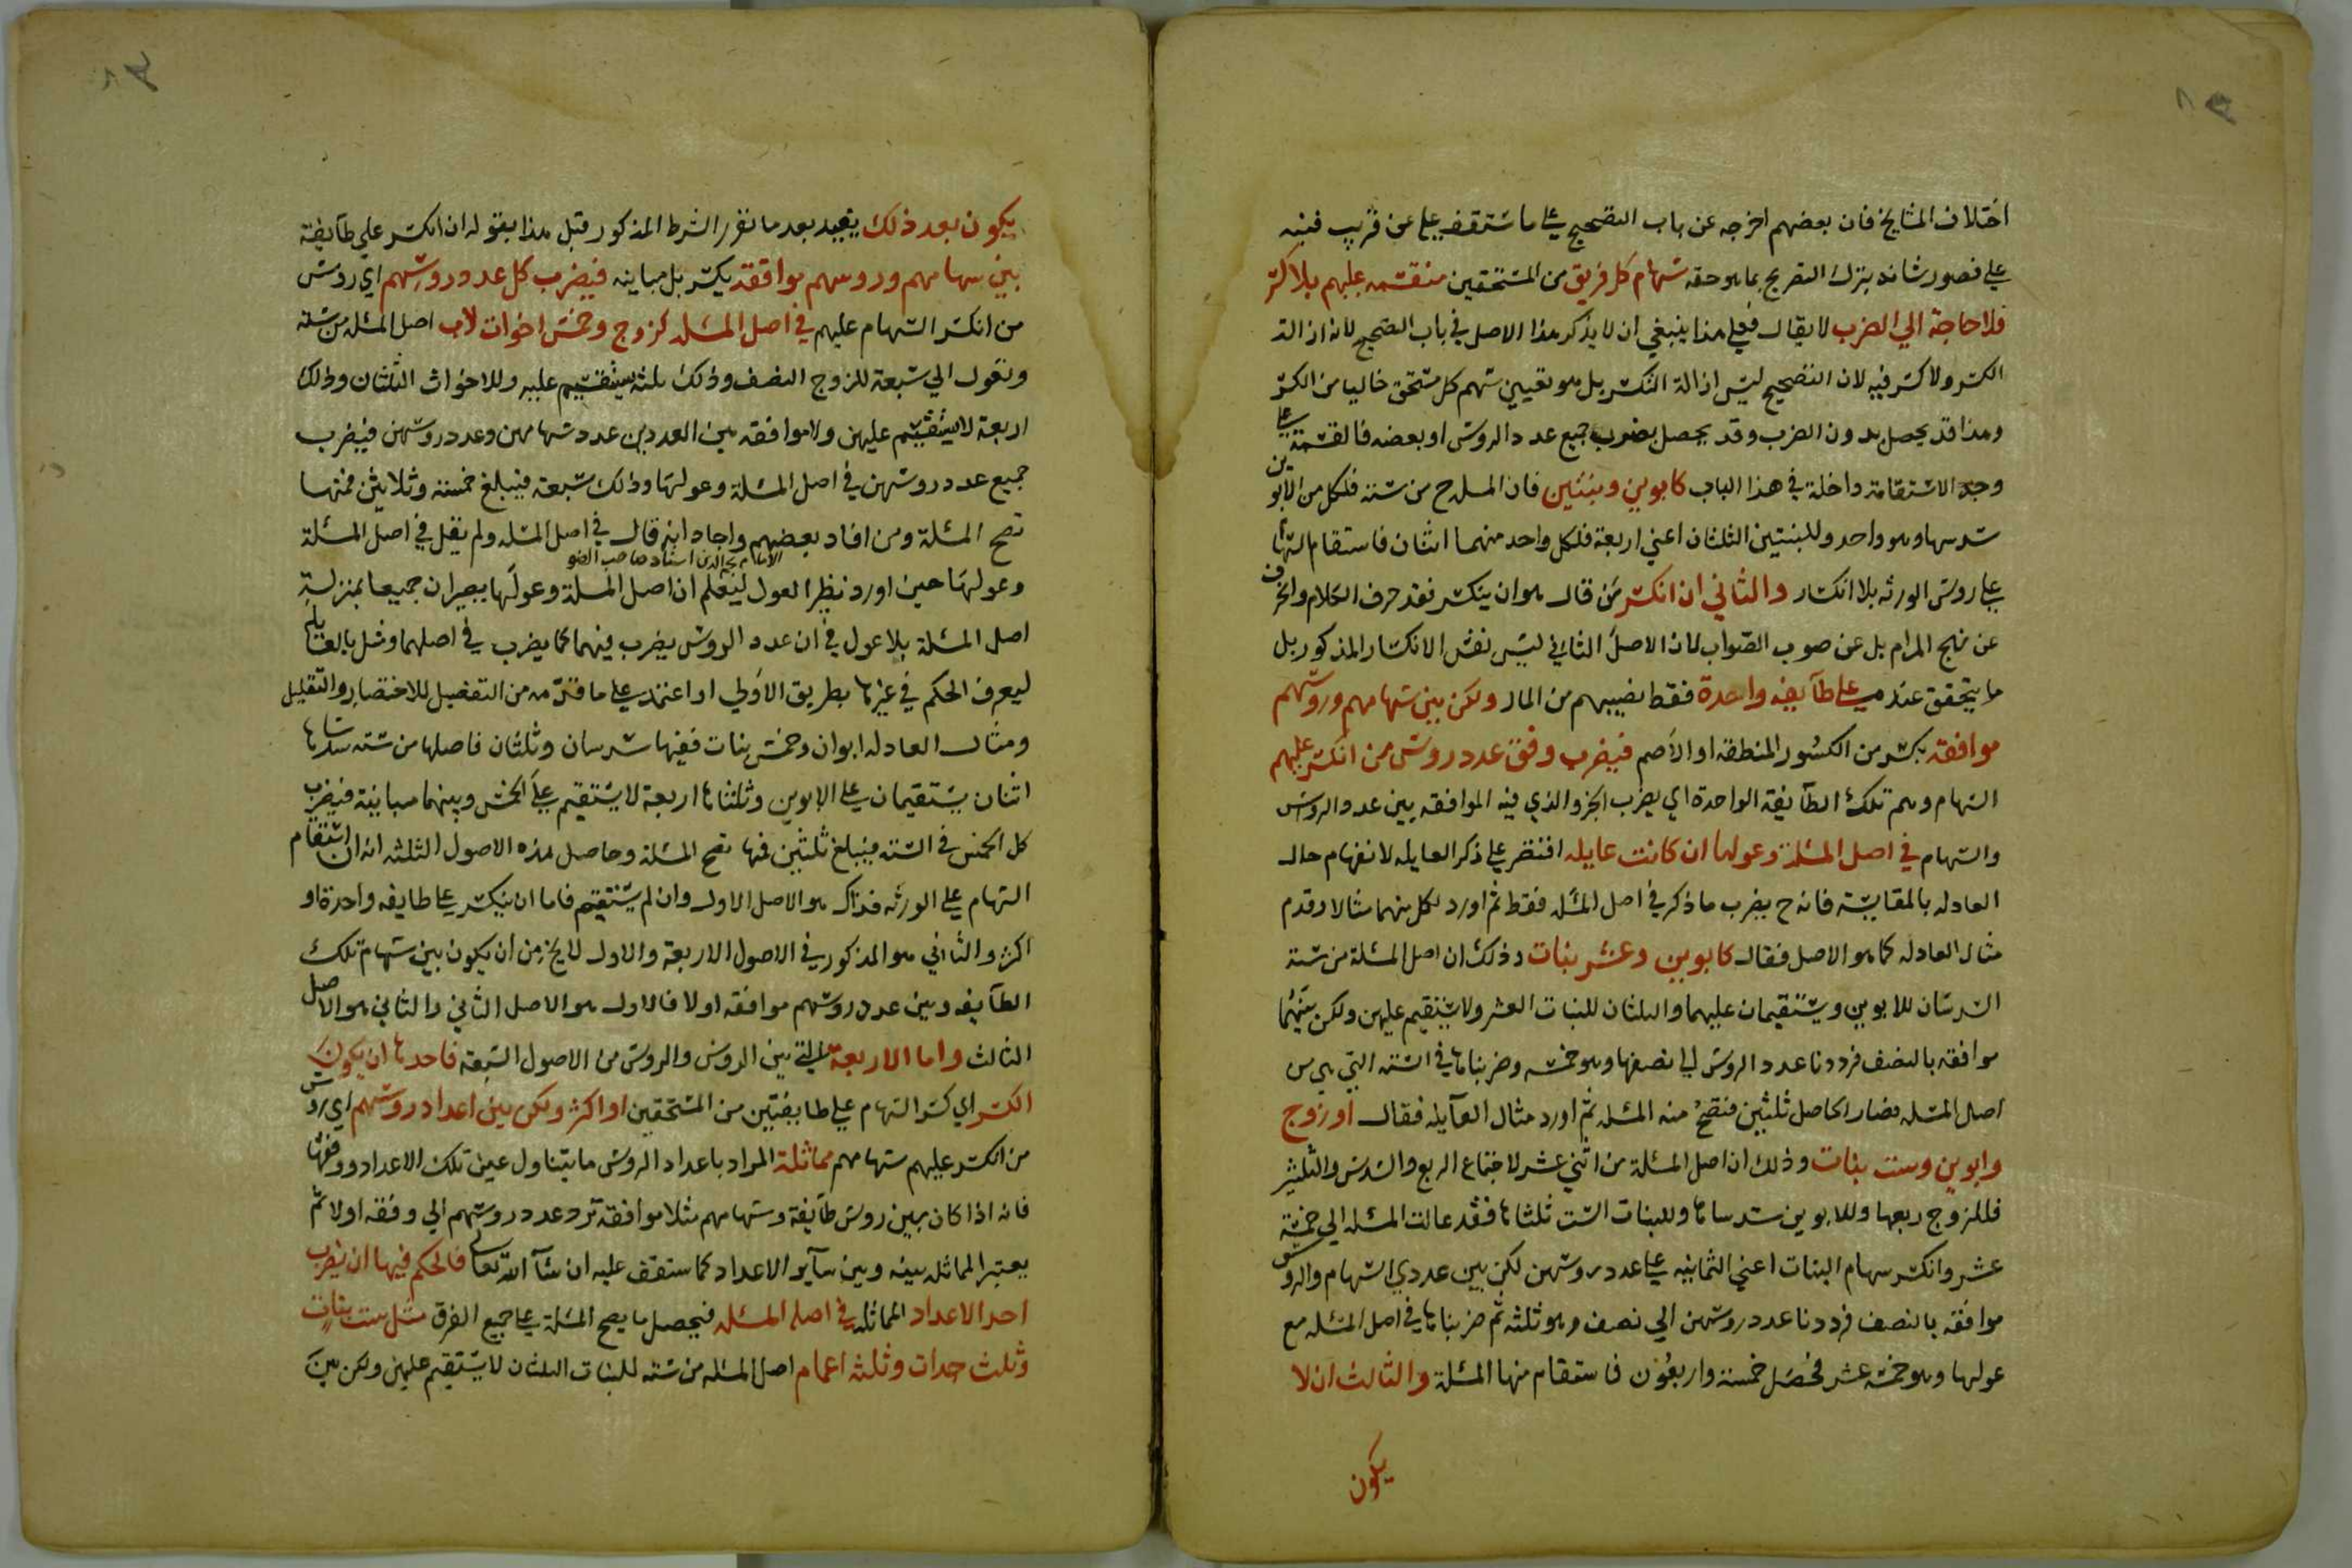 اختلاف المشايخ فان بعضهم اخرجه عن باب التصحيح علي ما ستقف عليه عن قريب فنبه
علي قصور شانه بترك التصريح بما هو حقه سهام كل فريق من المستحقين منقسمه عليهم بلا كسر
فلا حاجة الي الضرب لا يقال فعلي هذا ينبغي ان لا يذكر هذا الاصل في باب التصحيح لانه ازالة
الكسر ولا كسر فيه لان التصحيح ليس ازالة الكسر بل هو تعيين سهم كل مستحق خاليا من الكسر
وهذا قد يحصل بدون الضرب وقد يحصل بضرب جميع عدد الروس او بعضه فالقسمة علي
وجه الاستقامة داخلة في هذا الباب كابوين وبنتين فان المسله ح من ستة فلكل من الابوين
سدسها وهو واحد وللبنتين الثلثان اعني اربعة فلكل واحد منهما اثنان فاستقام السهام
علي روس الورثه بلا انكسار والثاني ان انكسر من قال هو ان ينكسر فقد حرف الكلام وانحرف
عن نهج المرام بل عن صوب الصواب لان الاصل الثاني ليس نفس الانكسار المذكور بل
ما يتحقق عنده علي طآيفه واحدة فقط نصيبهم من المال ولكن بين سهامهم وروسهم
موافقه بكسر من الكسور المنطقه او الاصم فيضرب وفق عدد روس من انكسر عليهم
السهام وهم تلك الطآيفة الواحدة اي يضرب الجزو الذي فيه الموافقه بين عدد الروس
والسهام في اصل المسئلة وعولها ان كانت عايله اقتصر علي ذكر العايله لانفهام حال
العادله بالمقايسة فانه ح يضرب ما ذكر في اصل المسئله فقط ثم اورد لكل منهما مثالا وقدم
مثال العادله كما هو الاصل فقال كابوين وعشر بنات وذلك ان اصل المسئلة من ستة
السدسان للابوين ويستقيمان عليهما والثلثان للبنات العشر ولا يستقيم عليهن ولكن بينهما
موافقه بالنصف فرددنا عدد الروس الي نصفها وهو خمسه وضربناها في الستة التي هي من
اصل المسئله فصار الحاصل ثلثين فتصح منه المسئله ثم اورد مثال العآيله فقال او زوج
وابوين وست بنات وذلك ان اصل المسئلة من اثني عشر لاجتماع الربع والسدس والثلثين
فللزوج ربعها وللابوين سدساها وللبنات الست ثلثاها فقد عالت المسئله الي خمسة
عشر وانكسر سهام البنات اعني الثمانيه علي عدد روسهن لكن بين عددي السهام والروس
موافقه بالنصف فرددنا عدد روسهن الي نصف وهو ثلثه ثم ضربناها في اصل المسئله مع
عولها وهو خمسه عشر فحصل خمسة واربعون فاستقام منها المسئلة والثالث ان لا
يكون
يكون بعد ذلك يقييد بعد ما تقرر الشرط المذكور قبل هذا بقوله ان انكسر علي طآيفة
بين سهامهم وروسهم موافقة بكسر بل مباينه فيضرب كل عدد روسهم اي روس
من انكسر السهام عليهم في اصل المسئله كزوج وخمس اخوات لاب اصل المسئله من ستة
وتعول الي سبعة للزوج النصف وذلك ثلثه يستقيم عليه وللاخوات الثلثان وذلك
اربعة لا يستقيم عليهن ولا موافقه بين العددين عدد سهامهن وعدد روسهن فيضرب
جميع عدد روسهن في اصل المسئلة وعولها وذلك سبعة فيبلغ خمسة وثلاثين فمنها
تصح المسئلة ومن افاد بعضهم واجاد انه قال في اصل المسئله ولم يقل في اصل المسئلة
الامام نجم الدين استاد صاحب الضو
وعولها حين اورد نظير العول ليعلم ان اصل المسئلة وعولها يصيران جميعا بمنزلة
اصل المسئلة بلا عول في ان عدد الروس يضرب فيهما كما يضرب في اصلهما ومثل بالعايله
ليعرف الحكم في غيرها بطريق الاولي او اعتمد علي ما قدمه من التفصيل للاختصار والتقليل
ومثال العادله ابوان وخمس بنات ففيها سدسان وثلثان فاصلها من ستة سدساها
اثنان يستقيمان علي الابوين وثلثاها اربعة لا يستقيم علي الخمس وبينهما مباينة فيضرب
كل الخمس في الستة فيبلغ ثلثين فمنها تصح المسئلة وحاصل هذه الاصول الثلثه انه ان استقام
السهام علي الورثه فذاك هو الاصل الاول وان لم يستقيم فاما ان ينكسر علي طايفه واحدة او
اكثر والثاني هو المذكور في الاصول الاربعة والاول لا يخ من ان يكون بين سهام تلك
الطآيفه وبين عدد روسهم موافقه او لا فالاول هو الاصل الثاني والثاني هو الاصل
الثالث واما الاربعة التي بين الروس والروس من الاصول السبعة فاحدها ان يكون
الكسر اي كسر السهام علي طايفتين من المستحقين او اكثر ولكن بين اعداد روسهم اي روس
من انكسر عليهم سهامهم مماثلة المراد باعداد الروس ما يتناول عين تلك الاعداد ووفقها
فانه اذا كان بين روس طآيفة وسهامهم مثلا موافقه ترد عدد روسهم الي وفقه اولا ثم
يعتبر المماثله بينه وبين سآير الاعداد كما ستقف عليه ان شآ الله تعالي فالحكم فيها ان يضرب
احد الاعداد المماثله في اصل المسئله فيحصل ما يصح المسئلة علي جميع الفرق مثل ست بنات
وثلث جدات وثلثه اعمام اصل المسئله من ستة للبنات الثلثان لا يستقيم عليهن ولكن بين